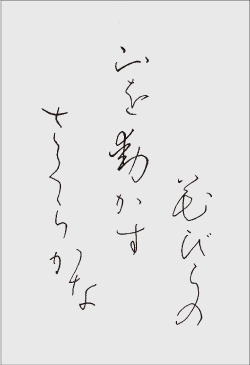 花びらの
山を動かす
さくらかな